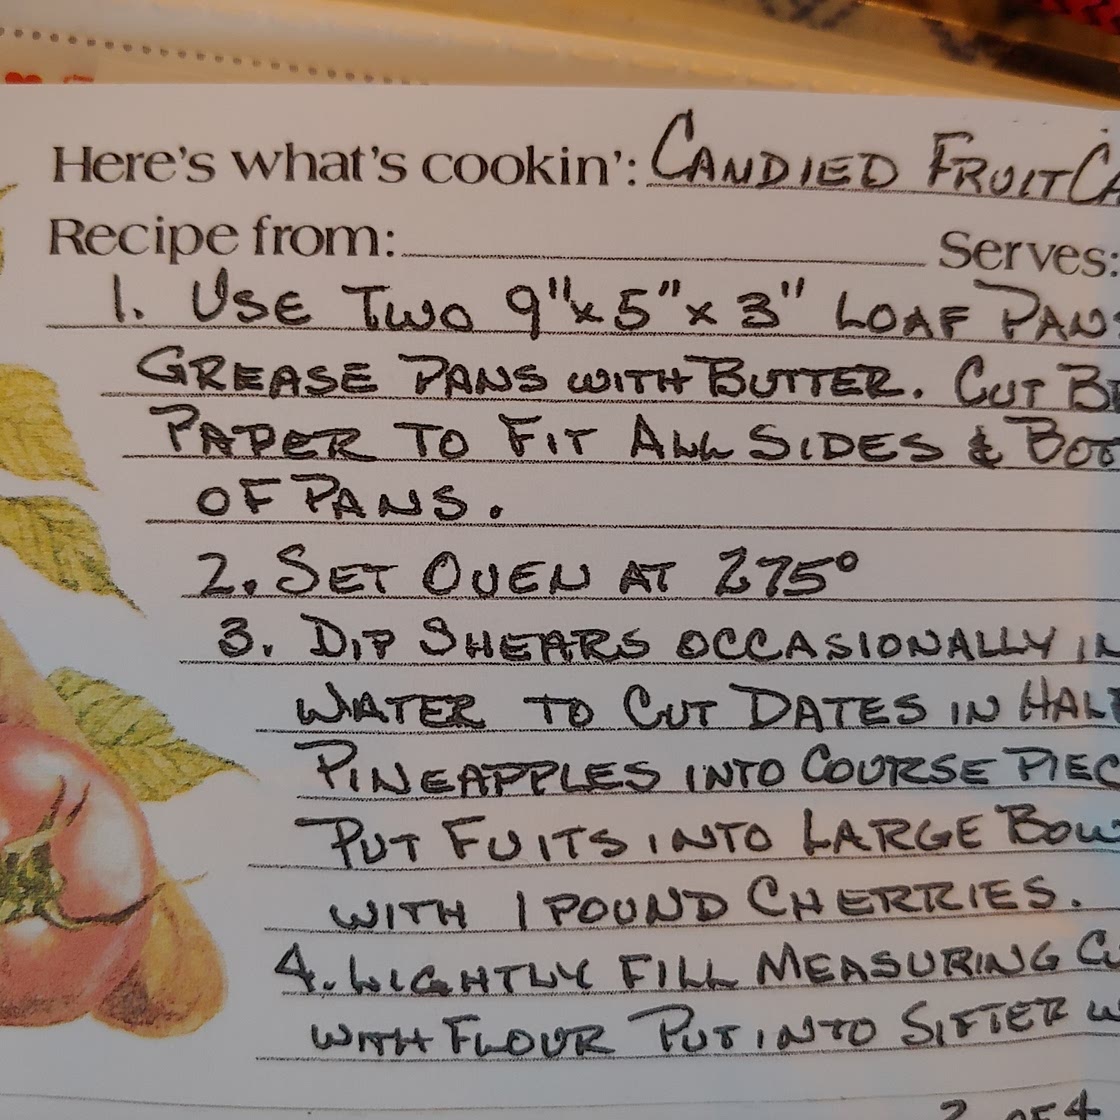 Here's what's cookin': CANDIED FRUIT CA
Recipe from: Serves:
1. USE TWO 9"x5"x3" LOAF PANS
GREASE PANS WITH BUTTER. CUT BR
PAPER TO FIT ALL SIDES & BOT
OF PANS.
2. SET OVEN AT 275°
3. DIP SHEARS OCCASIONALLY IN
WATER TO CUT DATES IN HALF
PINEAPPLES INTO COURSE PIEC
PUT FUITS INTO LARGE BOWL
WITH 1 POUND CHERRIES.
4. LIGHTLY FILL MEASURING CU
WITH FLOUR PUT INTO SIFTER W
2 OF 4